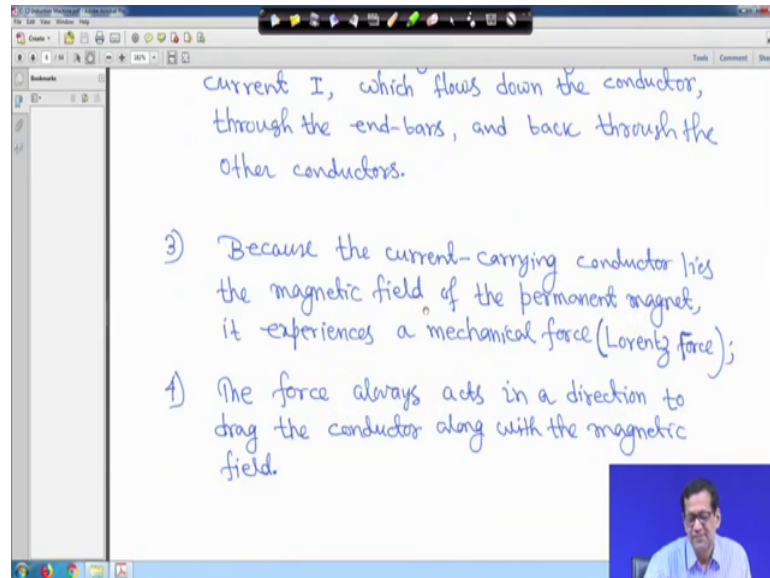 C-12 Induction Machine.pdf - Adobe Acrobat Pro
File Edit View Window Help
Create
4 / 94
182%
Tools Comment Share
Bookmarks
current I, which flows down the conductor,
through the end-bars, and back through the
other conductors.
3) Because the current-carrying conductor lies
the magnetic field of the permanent magnet,
it experiences a mechanical force (Lorentz Force);
4) The force always acts in a direction to
drag the conductor along with the magnetic
field.